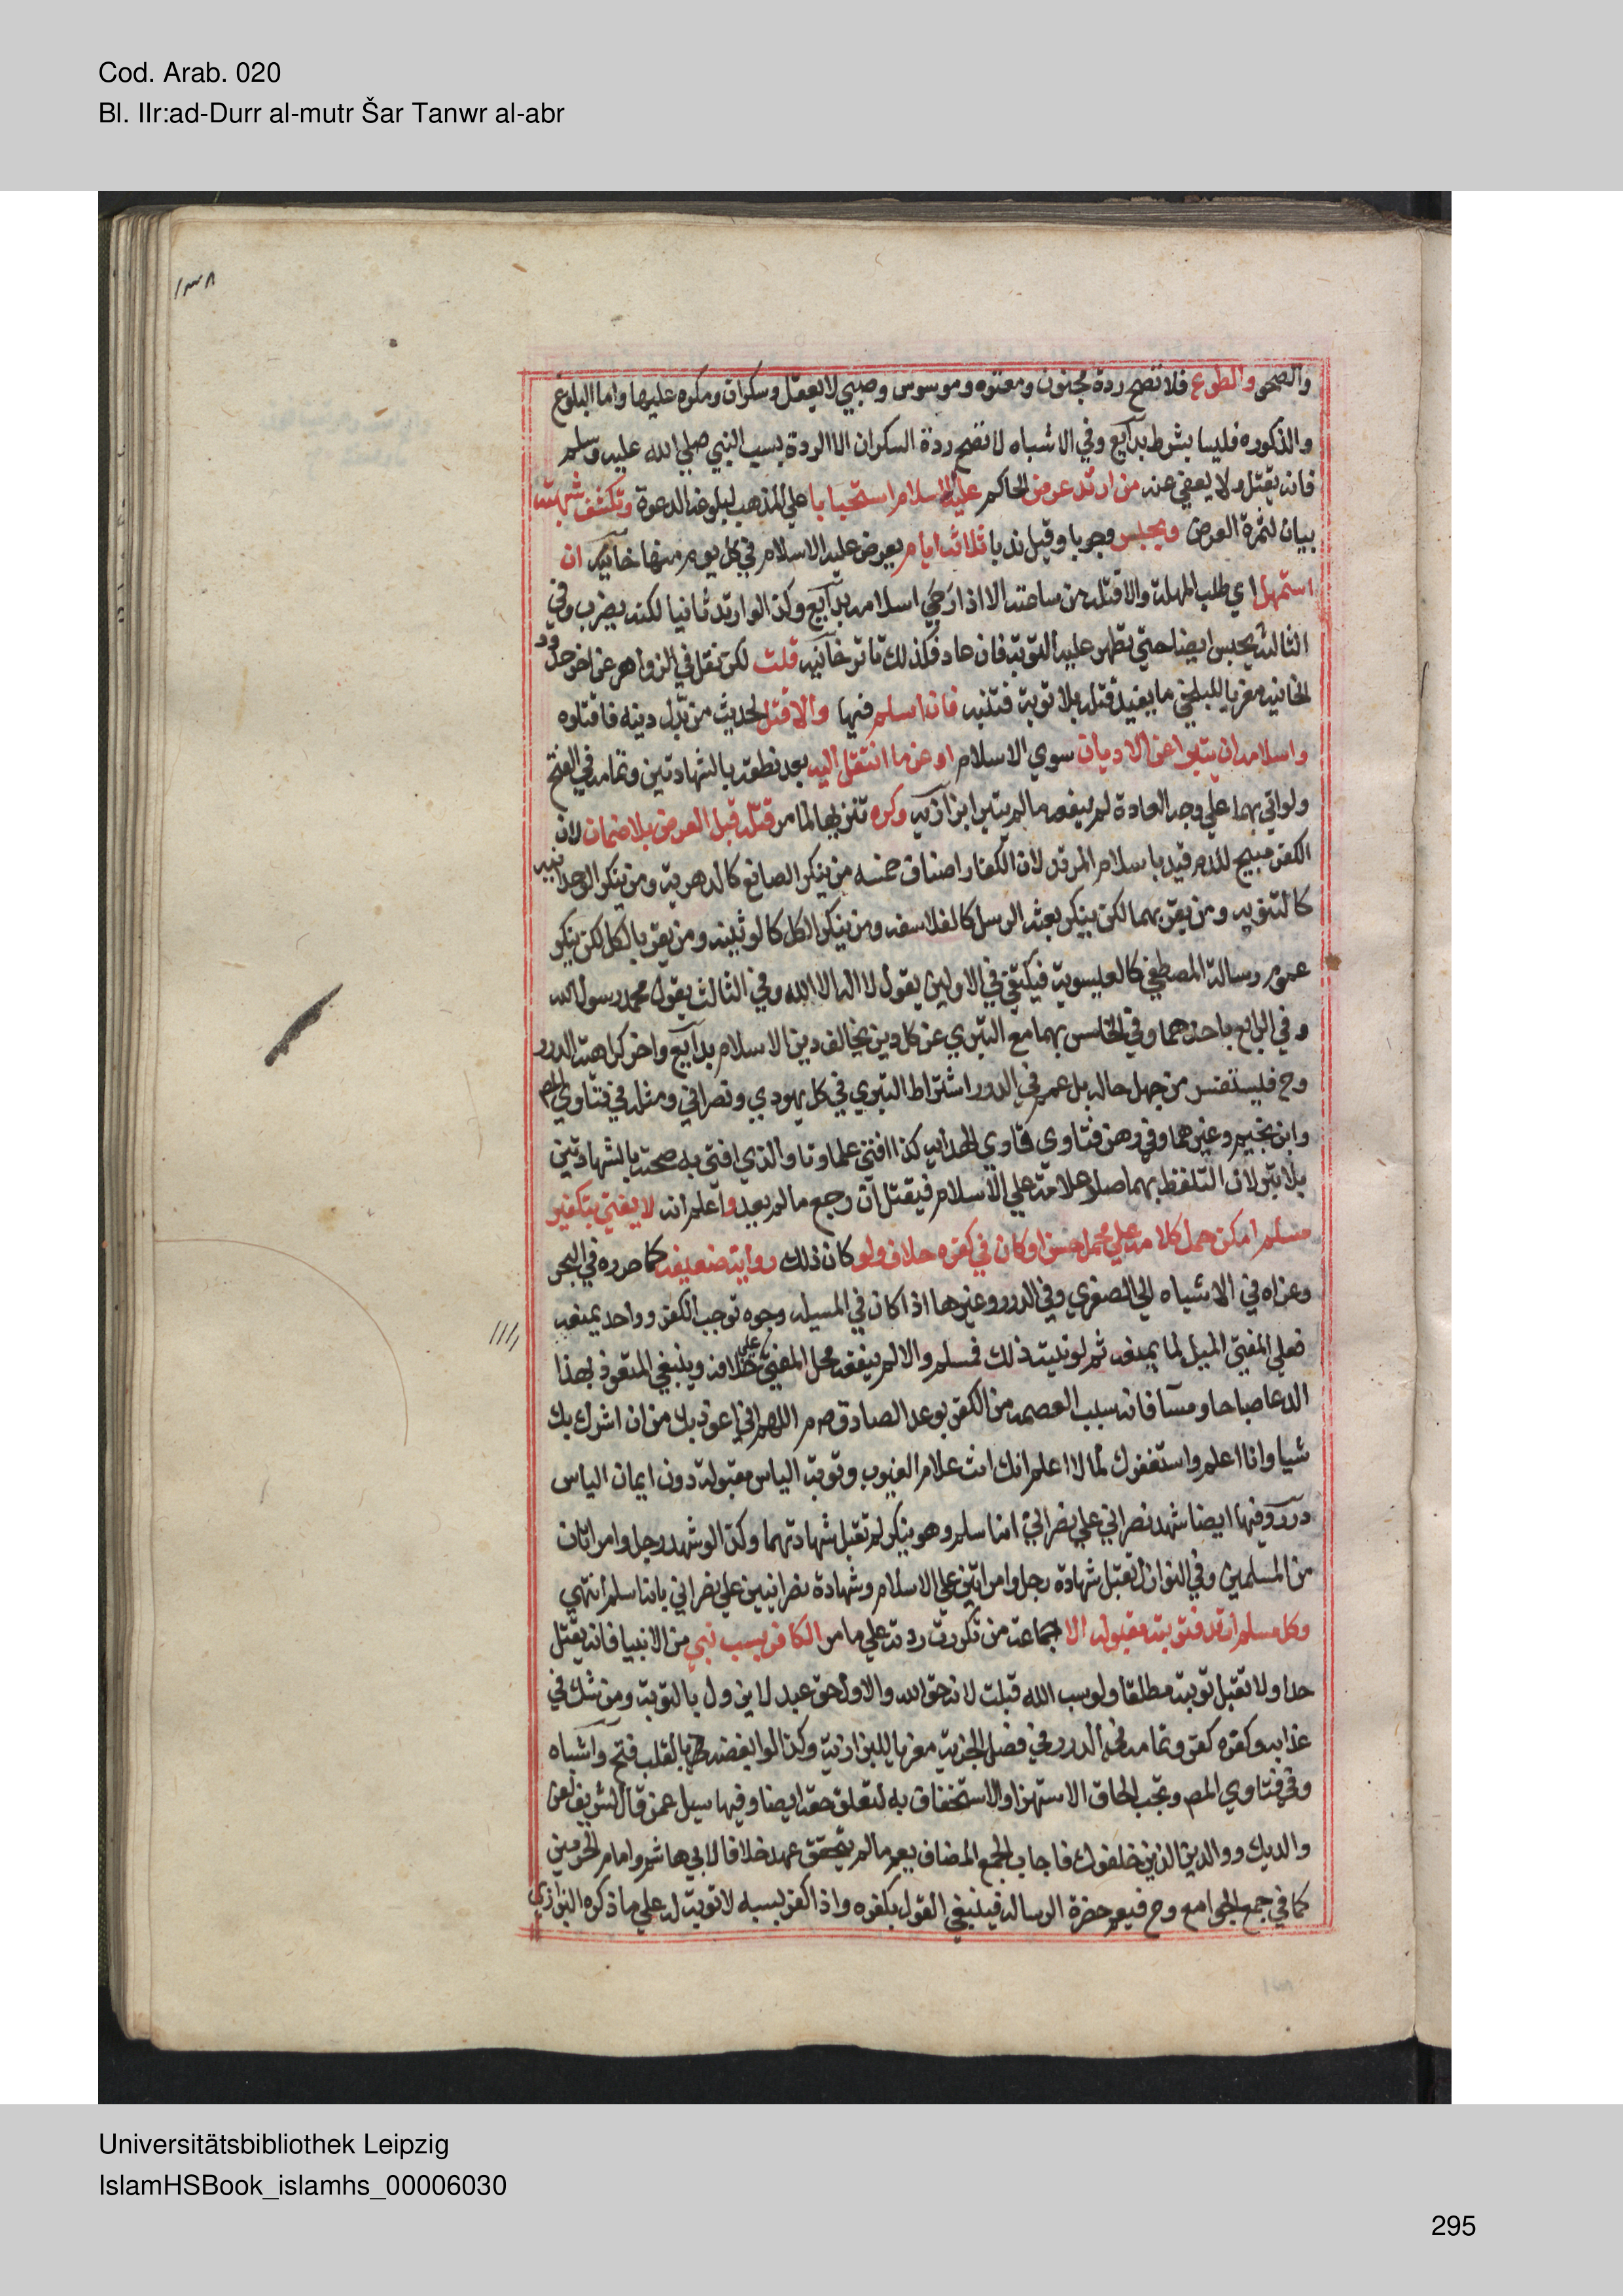 Cod. Arab. 020
Bl. IIr:ad-Durr al-mutr Šar Tanwr al-abr
١٣٨
والصحو والطوع فلا تصح ردة مجنون ومعتوه وموسوس وصبي لا يعقل وسكران ومكره عليها واما البلوغ
والذكوره فليسا بشرط بدآيع وفي الاشباه لا تصح ردة السكران الا الردة بسب النبي صلي الله عليه وسلم
فانه يقتل ولا يعفي عنه من ارتد عرض الحاكم عليه الاسلام استحبابا علي المذهب لبلوغه الدعوة وتكشف شبهته
بيان لثمرة العرض ويحبس وجوبا وقيل ندبا ثلاثه ايام يعرض عليه الاسلام في كل يوم منها خآنيه ان
استمهل اي طلب المهلة والا قتله من ساعته الا اذا رجي اسلامه بدآيع وكذا لو ارتد ثانيا لكنه يضرب وفي
الثالثه يحبس ايضا حتي تظهر عليه التوبة فان عاد فكذلك تاتر خآنيه قلت لكن نقل في الزواهر عن اخر حدود
الخانيه معزيا للبلخي ما يفيد قتله بلا توبة فتنبه فان اسلم فبها والا قتل لحديث من بدل دينه فاقتلوه
واسلامه ان يتبرا عن الاديان سوي الاسلام او عن ما انتقل اليه بعد نطقه بالشهادتين وتمامه في الفتح
ولو اتي بهما علي وجه العادة لم ينفعه ما لم يتبرا بزازيه وكره تنزيها لما مر قتله قبل العرض بلا ضمان لان
الكفر مبيح للدم قيد باسلام المرتد لان الكفار اصناف خمسه من ينكر الصانع كالدهرية ومن ينكر الوحدانيه
كالثنويه ومن يقر بهما لكن ينكر بعثه الرسل كالفلاسفه ومن ينكر الكل كالوثنيه ومن يقر بالكل لكن ينكر
عموم رسالة المصطفي كالعيسوية فيكتفي في الاولين بقول لا اله الا الله وفي الثالث بقول محمد رسول الله
وفي الرابع باحدهما وفي الخامس بهما مع التبري عن كل دين يخالف دين الاسلام بدآيع واخر كراهية الدرر
وح فيستفسر من جهل حاله بل عمم في الدرر اشتراط التبري في كل يهودي ونصراني ومثله في فتاوي المص
وابن نجيم وغيرهما وفي رهن فتاوي قاري الهدايه كذا افتي علماونا والذي افتي به صحته بالشهادتين
بلا تبر لان التلفظ بهما صار علامة علي الاسلام فيقتل ان رجع ما لم يعد واعلم انه لا يفتي بتكفير
مسلم امكن حمل كلامه علي محمل حسن او كان في كفره خلاف ولو كان ذلك رواية ضعيفه كما حرره في البحر
وعزاه في الاشباه الي الصغري وفي الدرر وغيرها اذا كان في المسيله وجوه توجب الكفر وواحد يمنعه
فعلي المفتي الميل لما يمنعه ثم لو نيته ذلك فمسلم والا لم ينفعه حمل المفتي علي خلافه وينبغي المتعوذ بهذا
الدعا صباحا ومسآ فانه سبب العصمه من الكفر بوعد الصادق صم اللهم اني اعوذ بك من ان اشرك بك
شيا وانا اعلم واستغفرك لما لا اعلم انك انت علام الغيوب وتوبة الياس مقبولة دون ايمان الياس
درر وفيها ايضا شهد نصراني علي نصراني انه اسلم وهو ينكر لم تقبل شهادتهما وكذا لو شهد رجل وامراتان
من المسلمين وفي النوازل تقبل شهادة رجل وامراتين علي الاسلام وشهادة نصرانيين علي نصراني بانه اسلم انتهي
وكل مسلم ارتد فتوبته مقبوله الا جماعة من تكررت ردته علي ما مر الكافر بسب نبي من الانبيا فانه يقتل
حدا ولا تقبل توبته مطلقا ولو سب الله قبلت لانه حق الله والاول حق عبد لا يزول بالتوبة ومن شك في
عذابه وكفره كفر وتمامه في الدرر في فصل الجزية معزيا للبزازية وكذا لو ابغضه بالقلب فتح واشباه
وفي فتاوي المص ويجب الحاق الاستهزا والاستخفاف به لتعلق حقه ايضا وفيها سيل عمن قال لشريف لعن
والديك ووالدين الذين خلفوك فاجاب الجمع المضاف يعم ما لم يتحقق عهد خلافا لابي هاشم وامام الحرمين
كما في جمع الجوامع وح فيعم حضرة الرساله فينبغي القول بكفره واذا كفر بسبه لا توبة له علي ما ذكره البزازي
Universitätsbibliothek Leipzig
IslamHSBook_islamhs_00006030
295